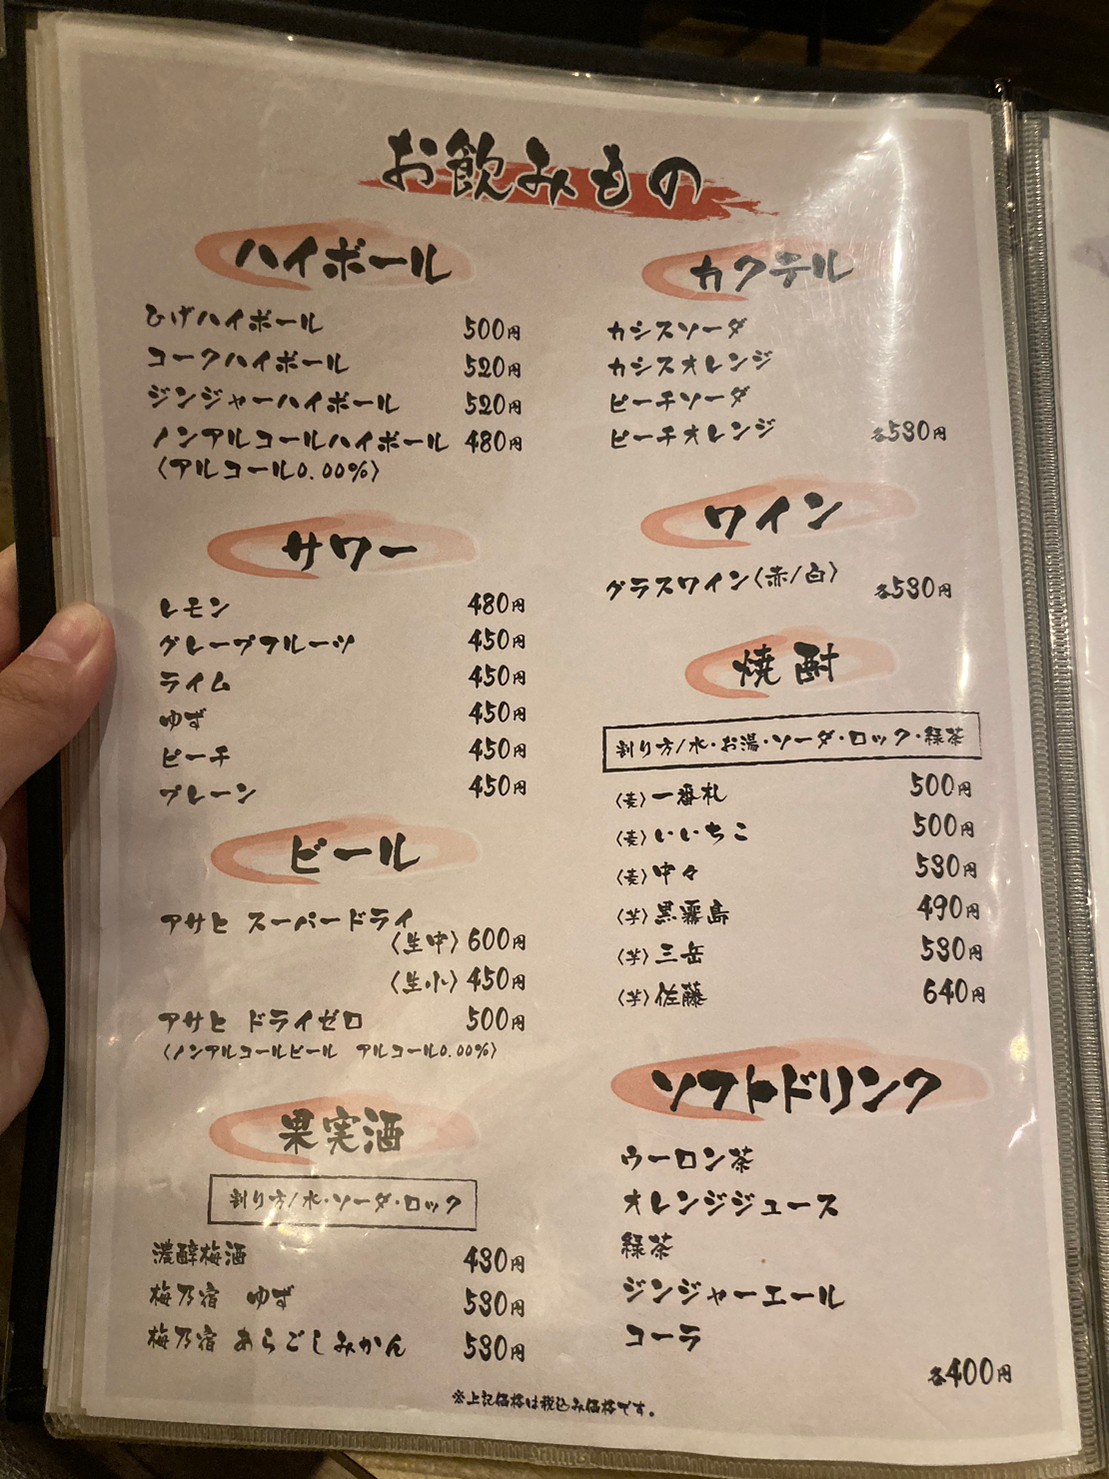 お飲みもの
ハイボール
ひげハイボール 500円
コークハイボール 520円
ジンジャーハイボール 520円
ノンアルコールハイボール 480円
〈アルコール0.00%〉
サワー
レモン 480円
グレープフルーツ 450円
ライム 450円
ゆず 450円
ピーチ 450円
プレーン 450円
ビール
アサヒ スーパードライ
〈生中〉600円
〈生小〉450円
アサヒ ドライゼロ 500円
〈ノンアルコールビール アルコール0.00%〉
果実酒
割り方/水・ソーダ・ロック
濃醇梅酒 480円
梅乃宿 ゆず 530円
梅乃宿 あらごしみかん 530円
カクテル
カシスソーダ
カシスオレンジ
ピーチソーダ
ピーチオレンジ 各530円
ワイン
グラスワイン〈赤/白〉 各530円
焼酎
割り方/水・お湯・ソーダ・ロック・緑茶
〈麦〉一番札 500円
〈麦〉いいちこ 500円
〈麦〉中々 530円
〈芋〉黒霧島 490円
〈芋〉三岳 530円
〈芋〉佐藤 640円
ソフトドリンク
ウーロン茶
オレンジジュース
緑茶
ジンジャーエール
コーラ
各400円
※上記価格は税込み価格です。